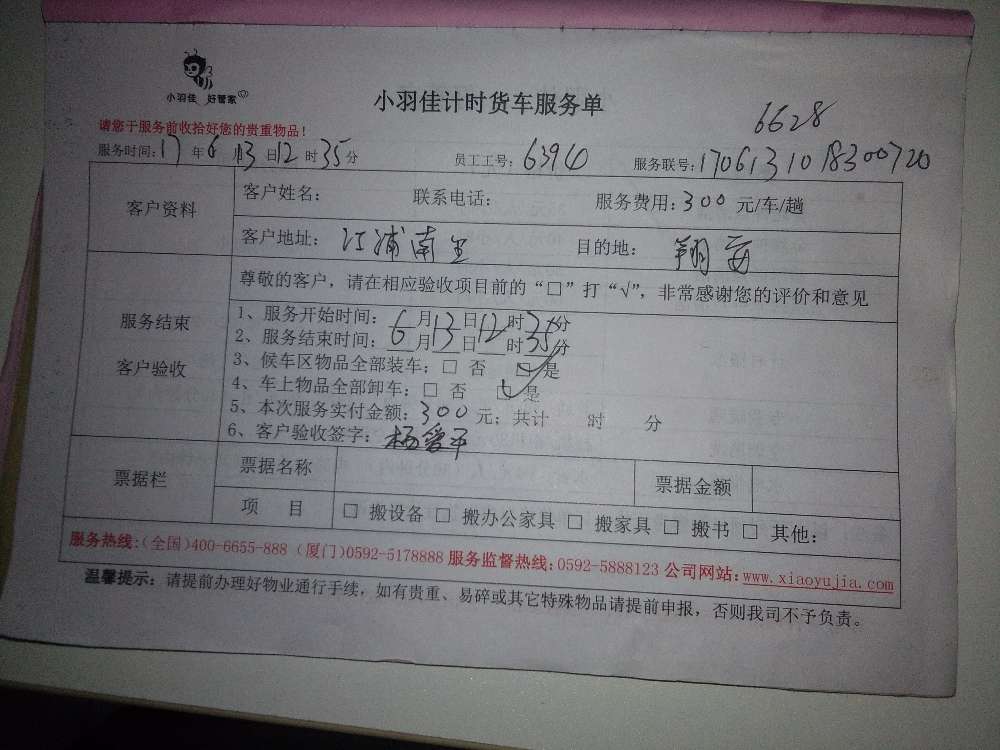 小羽佳 好管家
小羽佳计时货车服务单
6628
请您于服务前收拾好您的贵重物品！
服务时间：17年6月13日12时35分 员工工号：6394 服务联号：1706131018300720
客户资料
客户姓名： 联系电话： 服务费用：300元/车/趟
客户地址：江浦南里 目的地：翔安
服务结束
客户验收
尊敬的客户，请在相应验收项目前的“□”打“√”，非常感谢您的评价和意见
1、服务开始时间：6月13日12时35分
2、服务结束时间：6月13日12时35分
3、候车区物品全部装车：□ 否 ☑ 是
4、车上物品全部卸车：□ 否 ☑ 是
5、本次服务实付金额：300元；共计 时 分
6、客户验收签字：杨爱平
票据栏
票据名称 票据金额
项 目 □ 搬设备 □ 搬办公家具 □ 搬家具 □ 搬书 □ 其他：
服务热线：（全国）400-6655-888（厦门）0592-5178888 服务监督热线：0592-5888123 公司网站：www.xiaoyujia.com
温馨提示：请提前办理好物业通行手续，如有贵重、易碎或其它特殊物品请提前申报，否则我司不予负责。